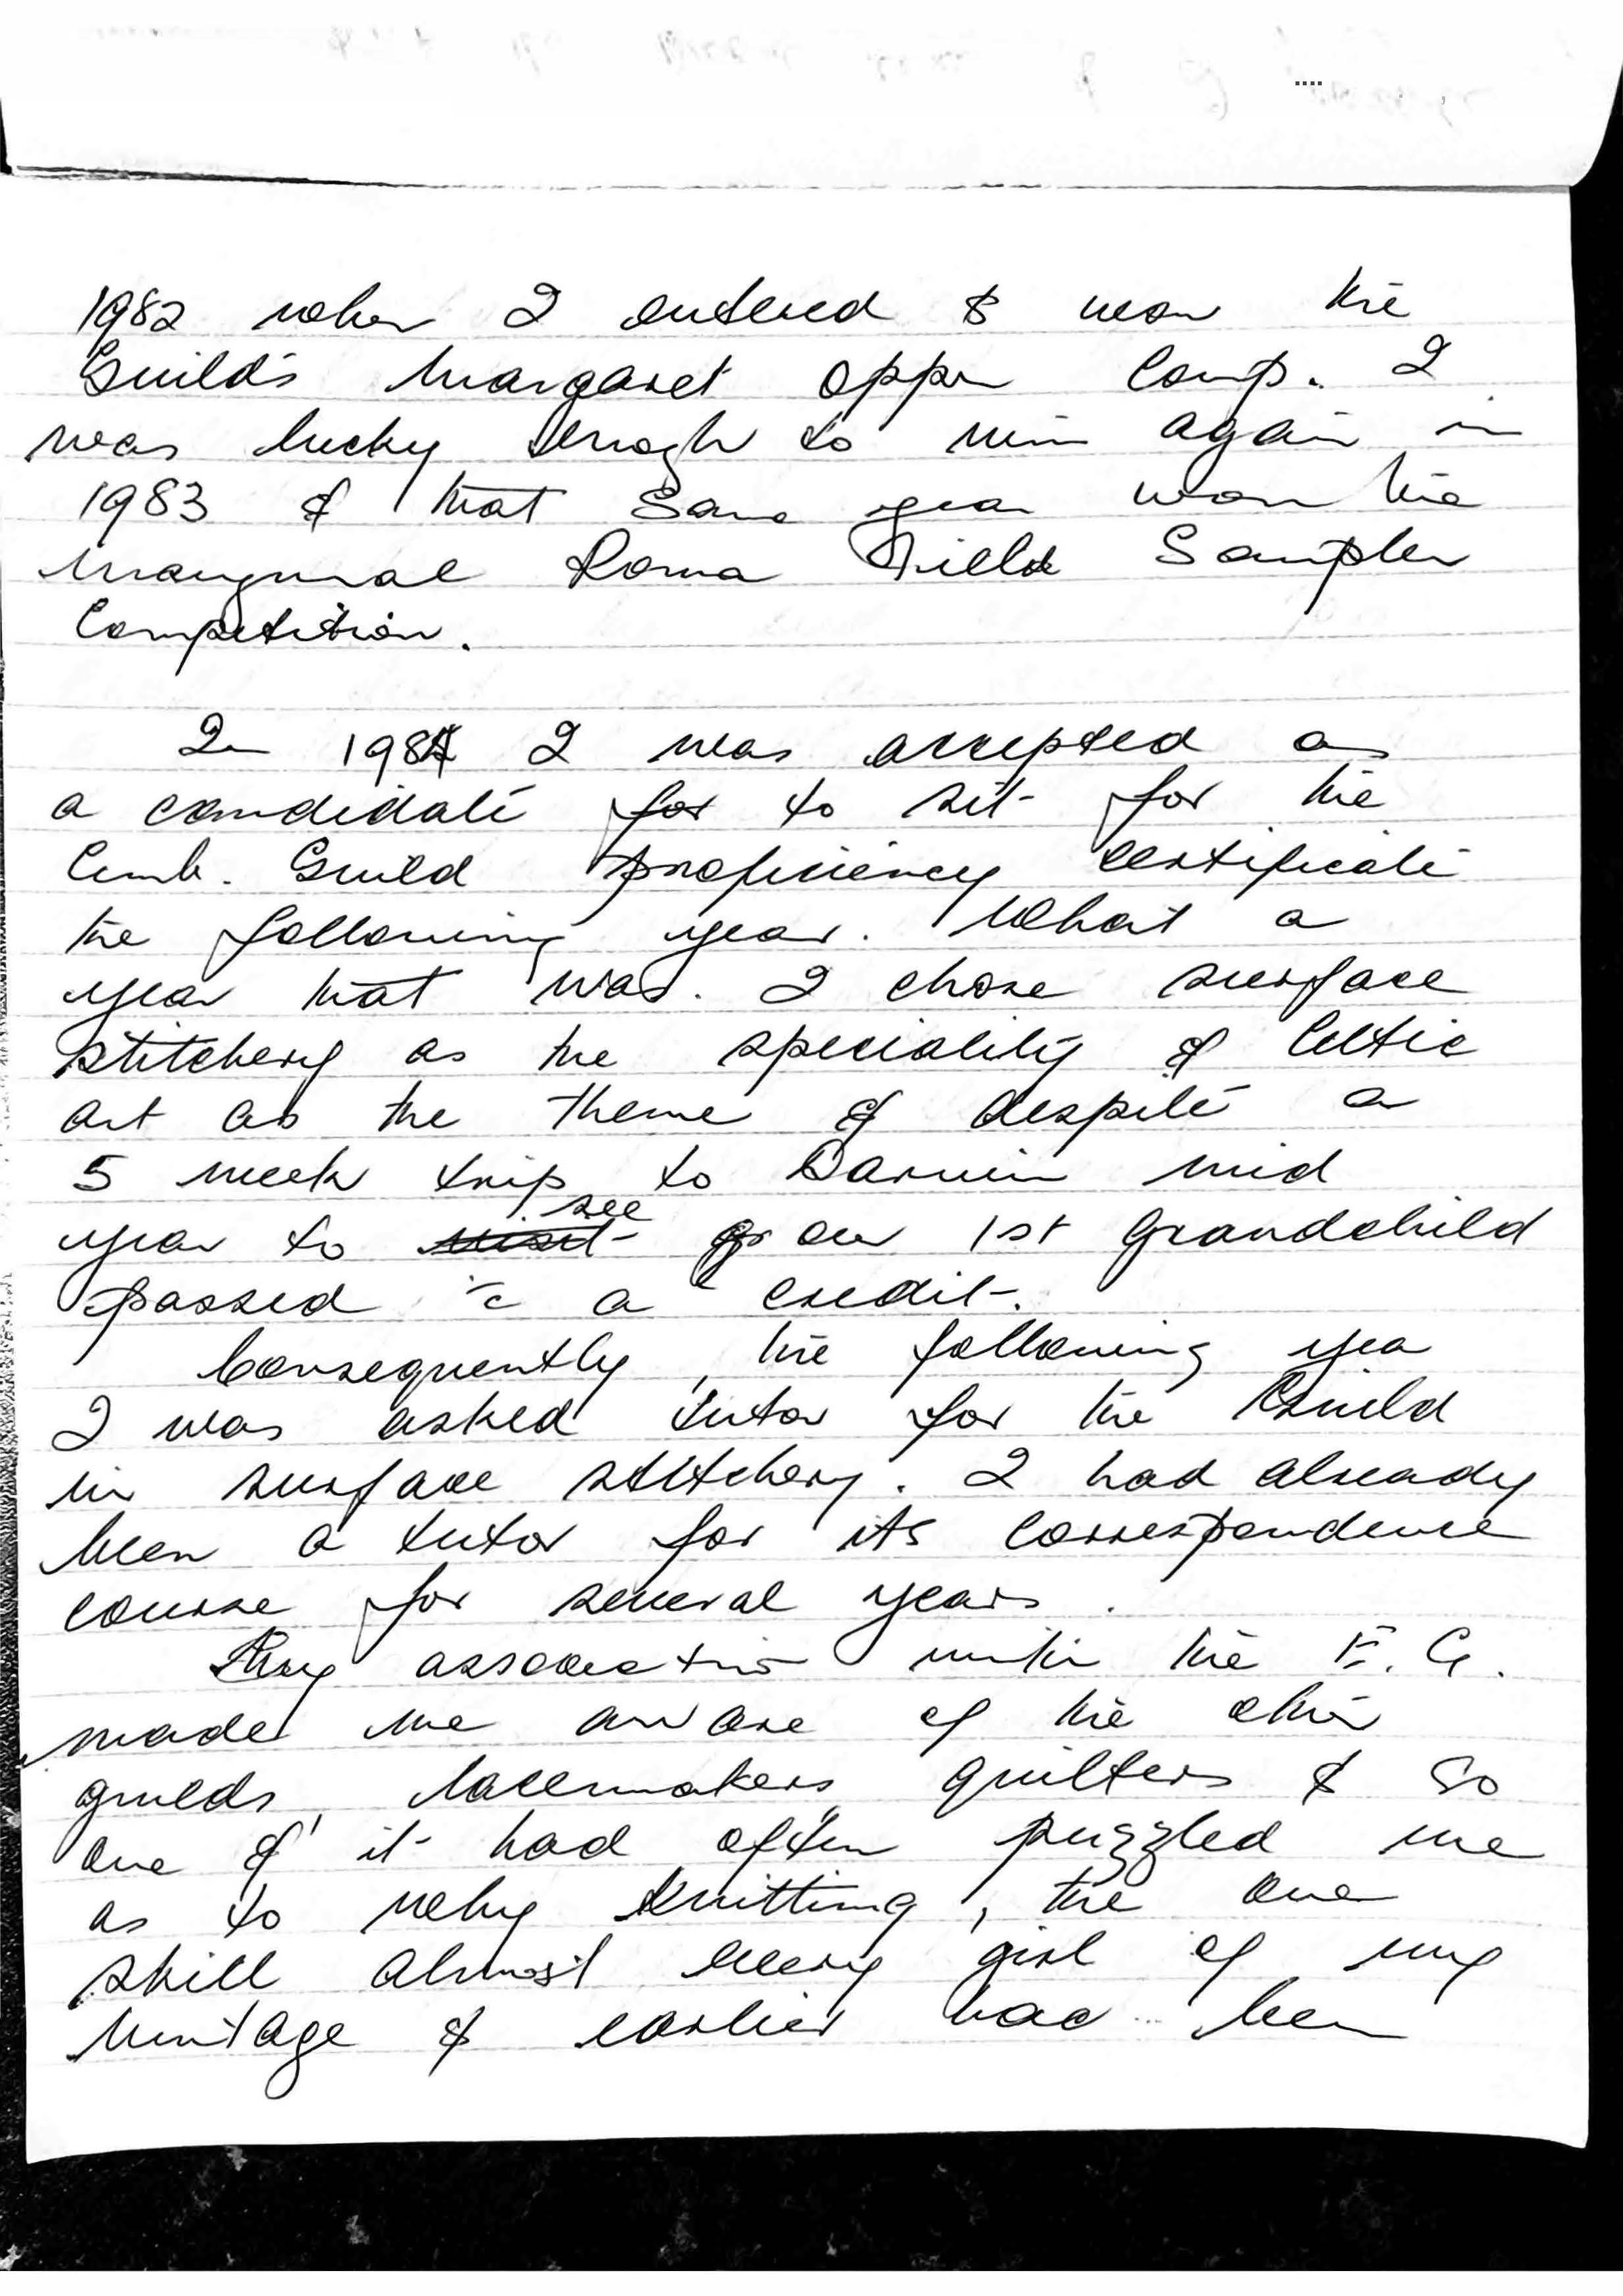 1982 when I entered & won the
Guild's Margaret Oppen Comp. I
was lucky enogh to win again in
1983 & that same year won the
inaugural Roma Field Sampler
Competition.
In 1984 I was accepted as
a candidate for to sit for the
Emb. Guild proficiency certificate
the following year. What a
year that was. I chose surface
stitchery as the speciality & Celtic
art as the theme & despite a
5 week trip to Darwin mid
year to see our 1st grandchild
passed c̄ a credit.
Consequently, the following year
I was asked tutor for the Guild
in surface stitchery. I had already
been a tutor for its correspondence
course for several years.
My association with the E. G.
made me aware of the other
guilds, lacemakers, quilters & so
one & it had often puzzled me
as to why knitting, the one
skill almost every girl of my
vintage & earlier had been